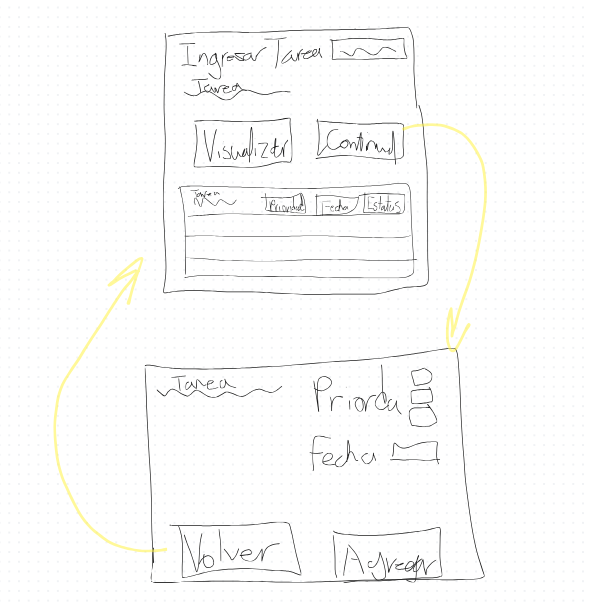 Ingresar Tarea
Tarea
Visualizar
Continu
Tarea
Prioridad Fecha Estatus
Tarea
Priorda
Fecha
Volver
Agregar